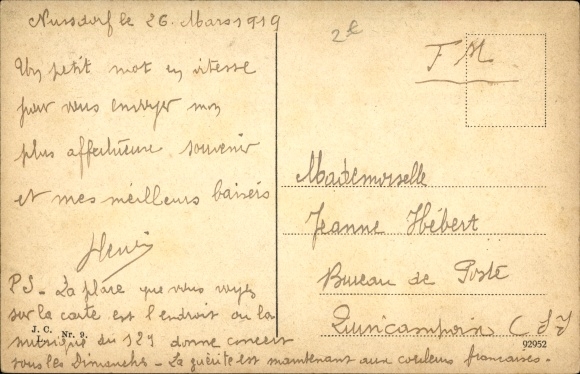 Nussdorf le 26. Mars 1919
Un petit mot en vitesse
pour vous envoyer mon
plus affectueux souvenir
et mes meilleurs baisers
Henri
PS - La place que vous voyez
sur la carte est l'endroit ou la
musique du 129 donne concert
tous les Dimanches - La guérite est maintenant aux couleurs françaises -
J. C. L. Nr. 9.
2e
F M
Mademoiselle
Jeanne Hébert
Bureau de Poste
Quincampoix (S I)
92952